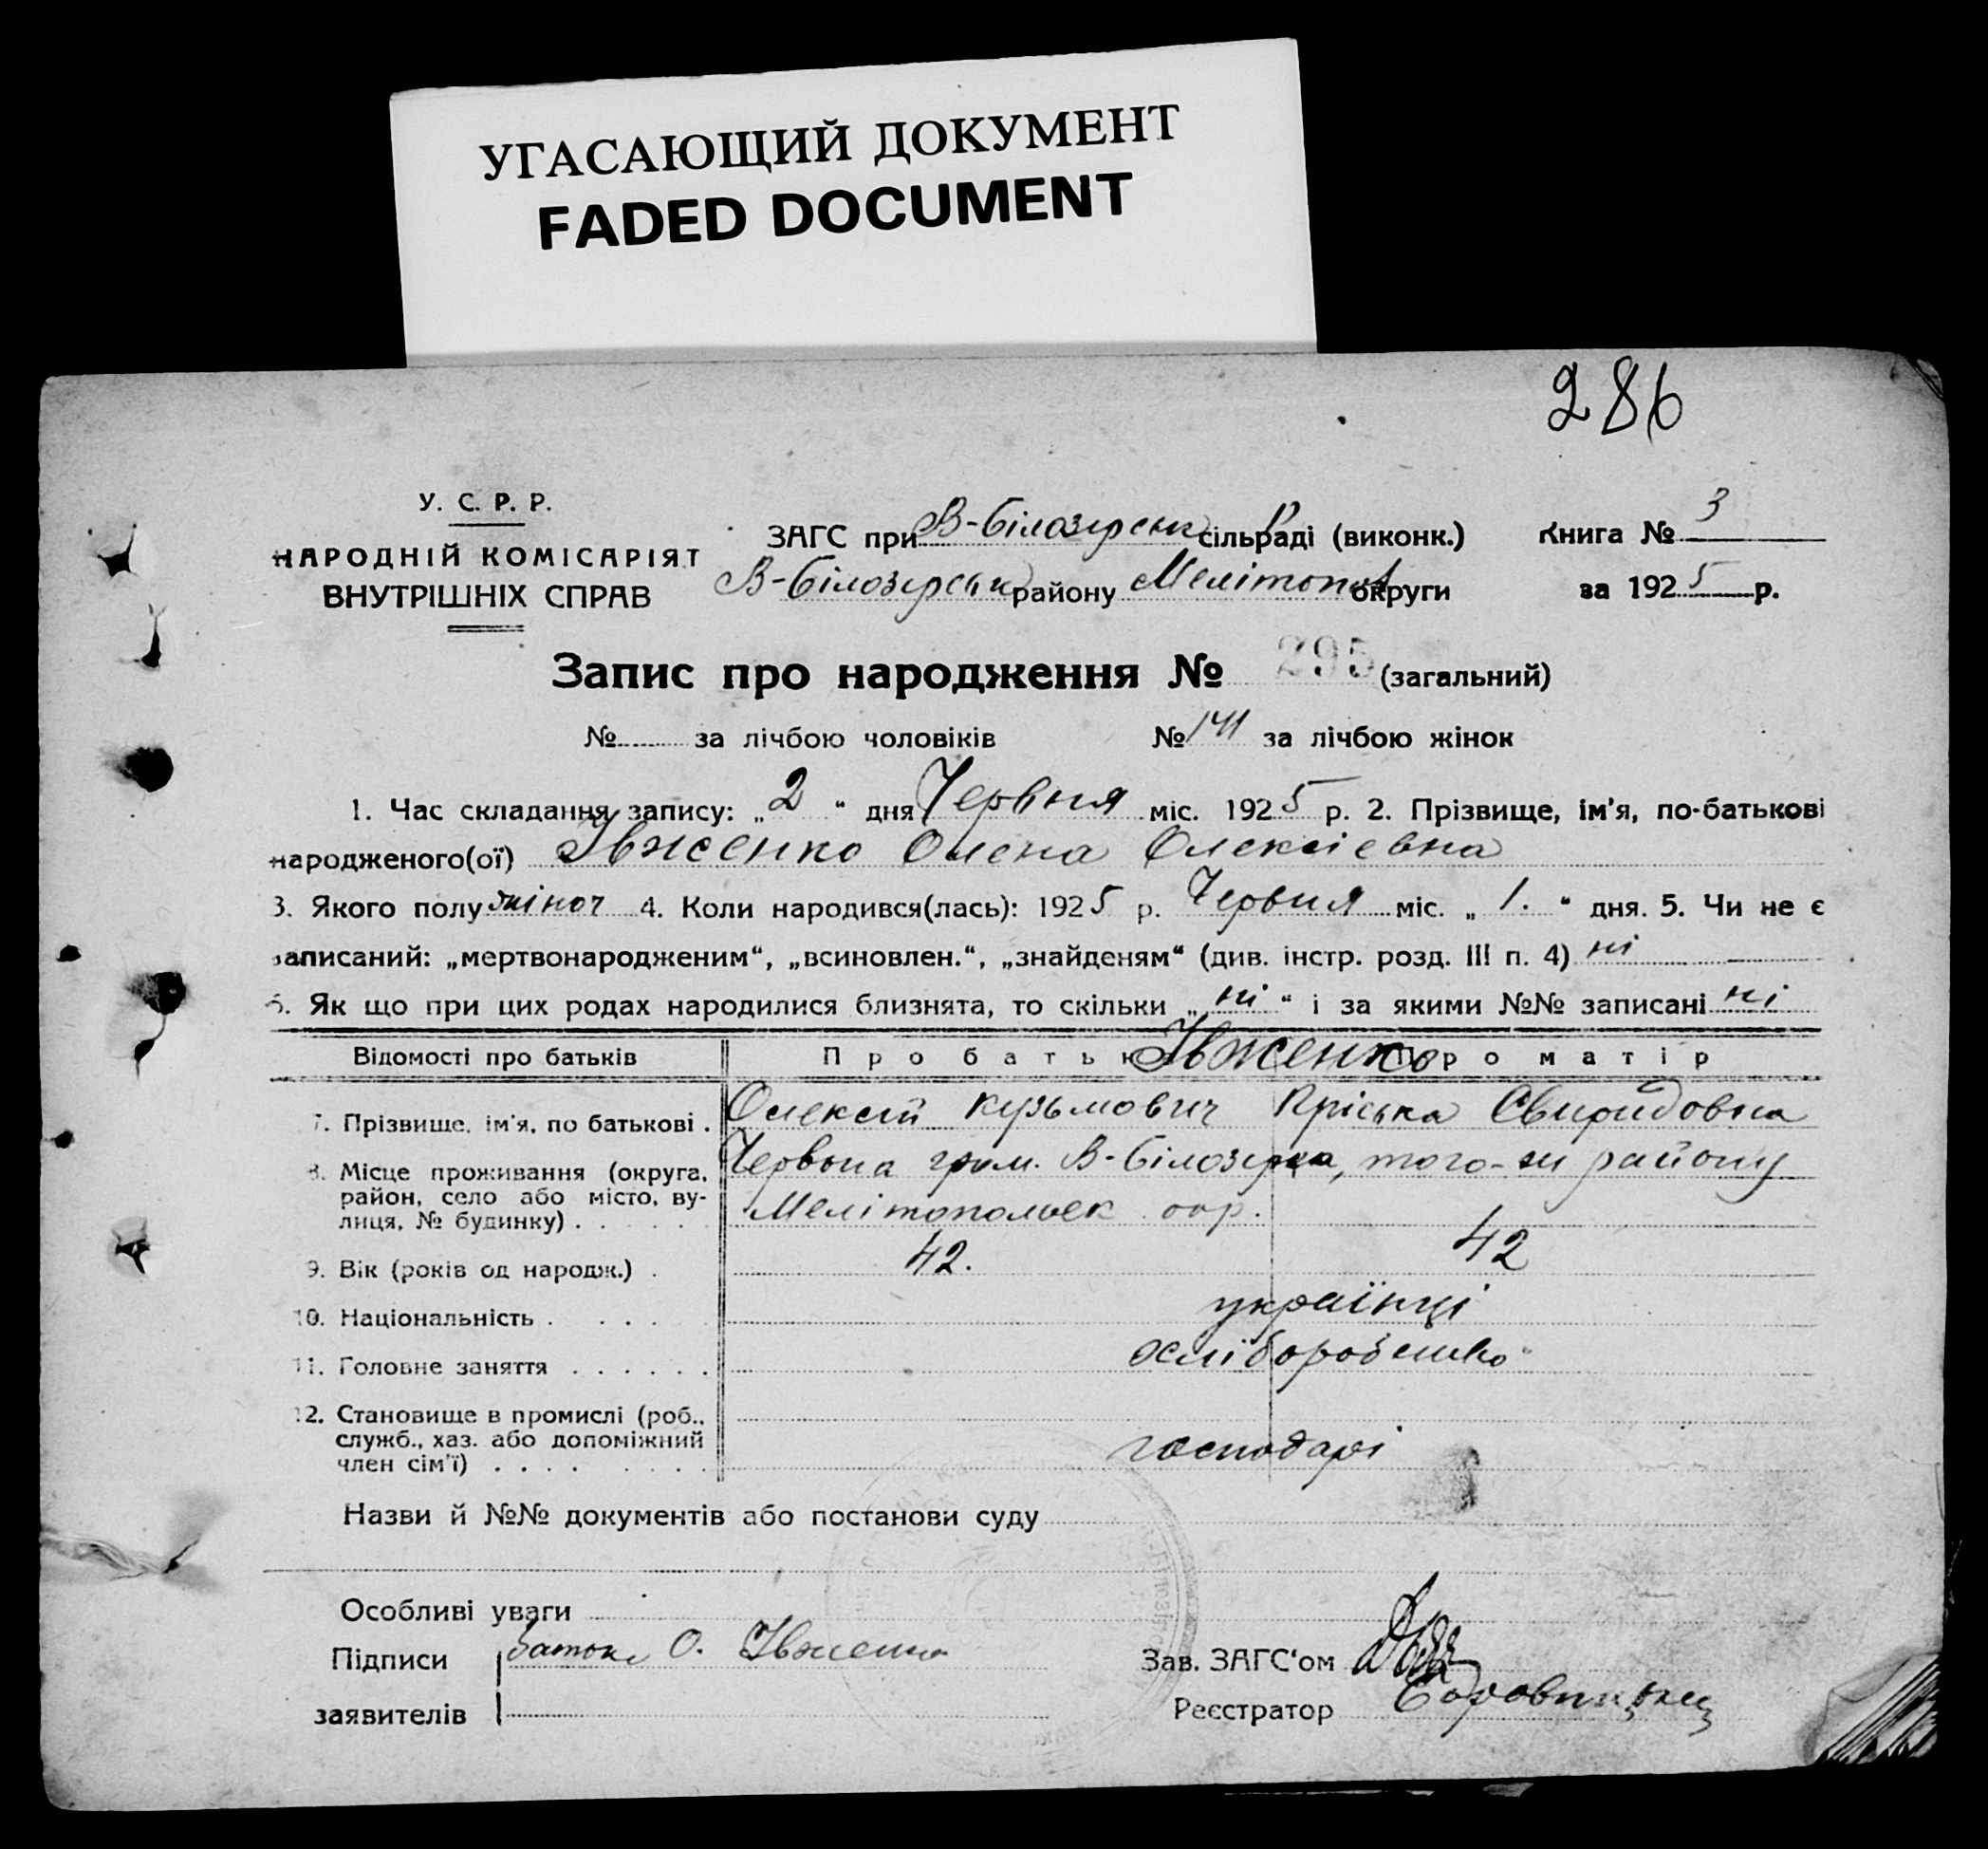 УГАСАЮЩИЙ ДОКУМЕНТ
FADED DOCUMENT
286
У. С. Р. Р.
НАРОДНІЙ КОМІСАРІЯТ
ВНУТРІШНІХ СПРАВ
ЗАГС при В-Білозирськ сільраді (виконк.)
В-Білозирськ району Мелітоп округи
Книга № 3
за 1925 р.
Запис про народження № 295 (загальний)
№ за лічбою чоловіків № 141 за лічбою жінок
1. Час складання запису: „2“ дня Червня міс. 1925 р. 2. Прізвище, ім'я, по-батькові
народженого(ої) Івженко Олена Олексіевна
3. Якого полу жіноч 4. Коли народився(лась): 1925 р. Червня міс. „1.“ дня. 5. Чи не є
записаний: „мертвонародженим“, „всиновлен.“, „знайденям“ (див. інстр. розд. III п. 4) ні
6. Як що при цих родах народилися близнята, то скільки „ні“ і за якими №№ записані ні
Відомості про батьків Про батька Івженко Про матір
7. Прізвище, ім'я, по батькові . Олексій Кузьмович Пріська Свиридовна
8. Місце проживання (округа, Червона гром. В-Білозирка, того-ж району
район, село або місто, ву- Мелітопольск окр.
лиця, № будинку) . . . . .
9. Вік (років од народж.) . 42. 42
10. Національність . . . . українці
11. Головне заняття . . . . . . хліборобство
12. Становище в промислі (роб.,
служб., хаз. або допоміжний господарі
член сім'ї) . . . . . . . .
Назви й №№ документів або постанови суду
Особливі уваги
Підписи батько О. Івженко
заявителів
Зав. ЗАГС'ом
Реєстратор